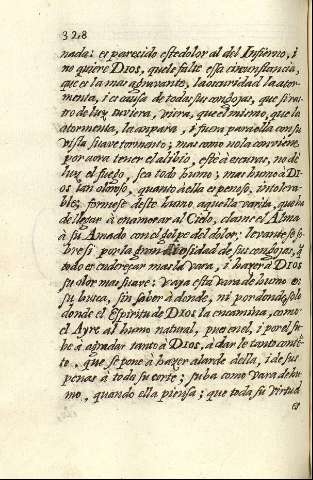 328
nada: es parecido este dolor al del Infierno, i
no quiere DIOS, que le falte essa circunstancia,
que es la mas agravante, la oscuridad la ator-
menta, i es causa de todas sus congojas, que si ras-
tro de luz tuviera, viera, que el mismo, que la
atormenta, la anpara, i fuera para ella con su
vista suave tormento; mas como no la conviene
por aora tener el alibio, esté à escuras, no dè
luz el fuego, sea todo humo; mas humo à DI-
OS tan oloroso, quanto à ella es penoso, intolera-
ble; formese deste humo aquella varita, que ha
de llegar à enamorar al Cielo, clame el Alma
à su Amado con el golpe del dolor; levantese so-
bre si por la gran                de sus congojas, q̃
todo es endereçar mas la vara, i hazer à DIOS
su olor mas suave: Vaya esta vara de humo en
su busca, sin saber à donde, ni por donde, solo
donde el Espiritu de DIOS la encamina, como
el Ayre al humo natural, pues en el, i por el su-
be à agradar tanto à DIOS, à darle tanto conte-
to, que se pone à hazer alarde della, i de sus
penas à toda su corte; suba como Vara de hu-
mo, quando ella piensa; que toda su virtud
es